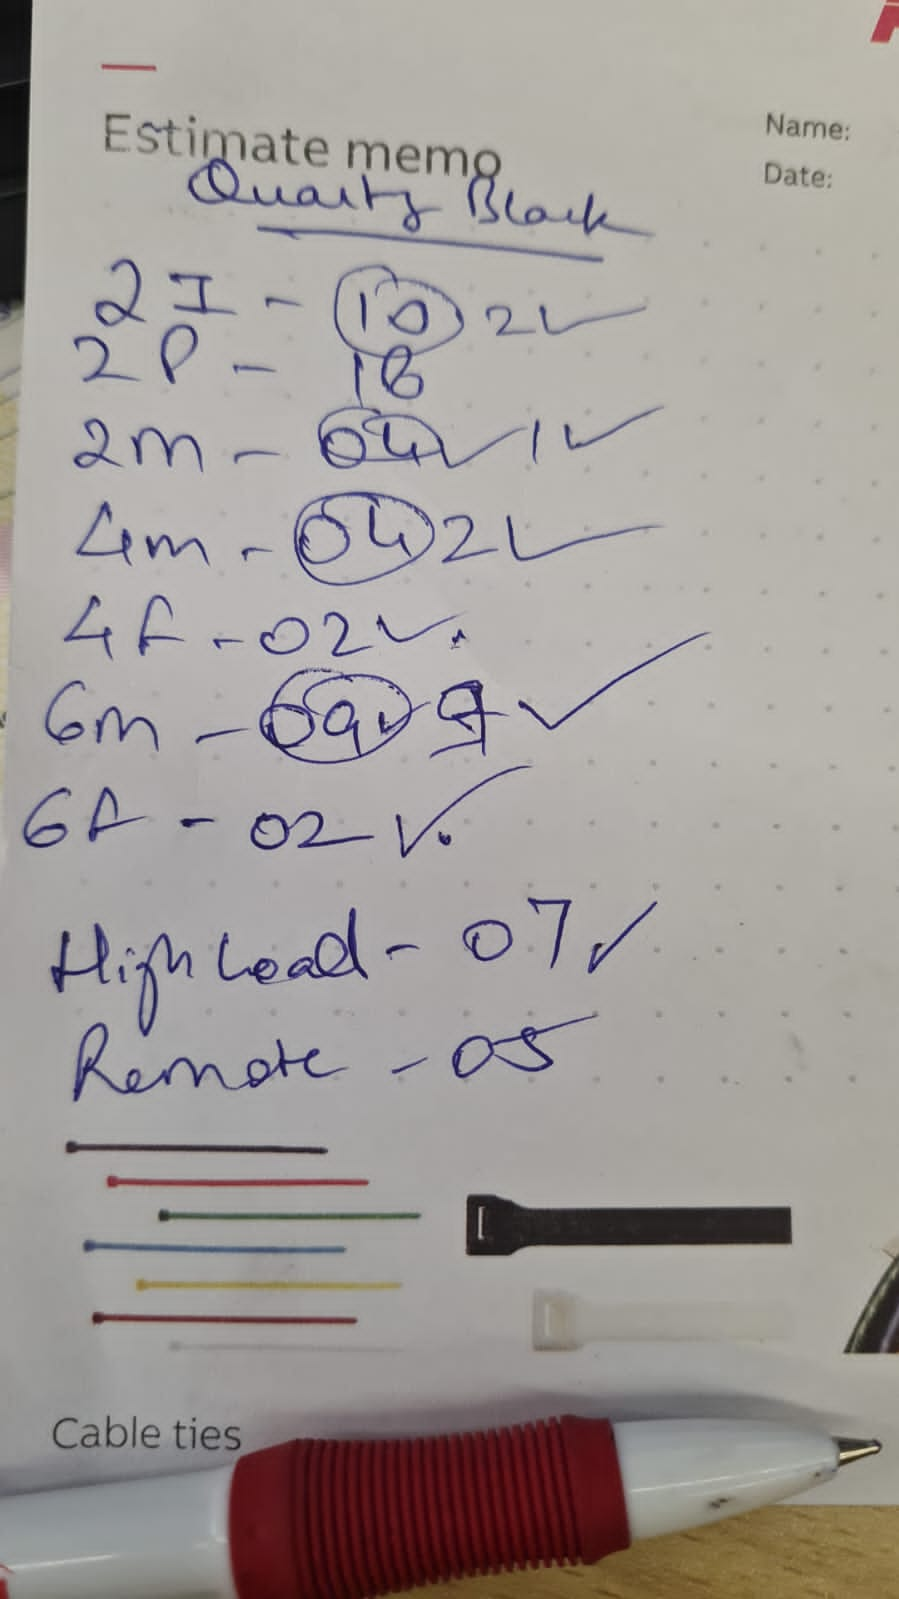 Estimate memo
Name:
Date:
Quartz Black
2I - 10 2 ✓
2P - 16
2m - 04 ✓ 1 ✓
4m - 04 2 ✓
4F - 02 ✓
6m - 09 ✓ 9 ✓
6F - 02 ✓
High Load - 07 ✓
Remote - 05
Cable ties